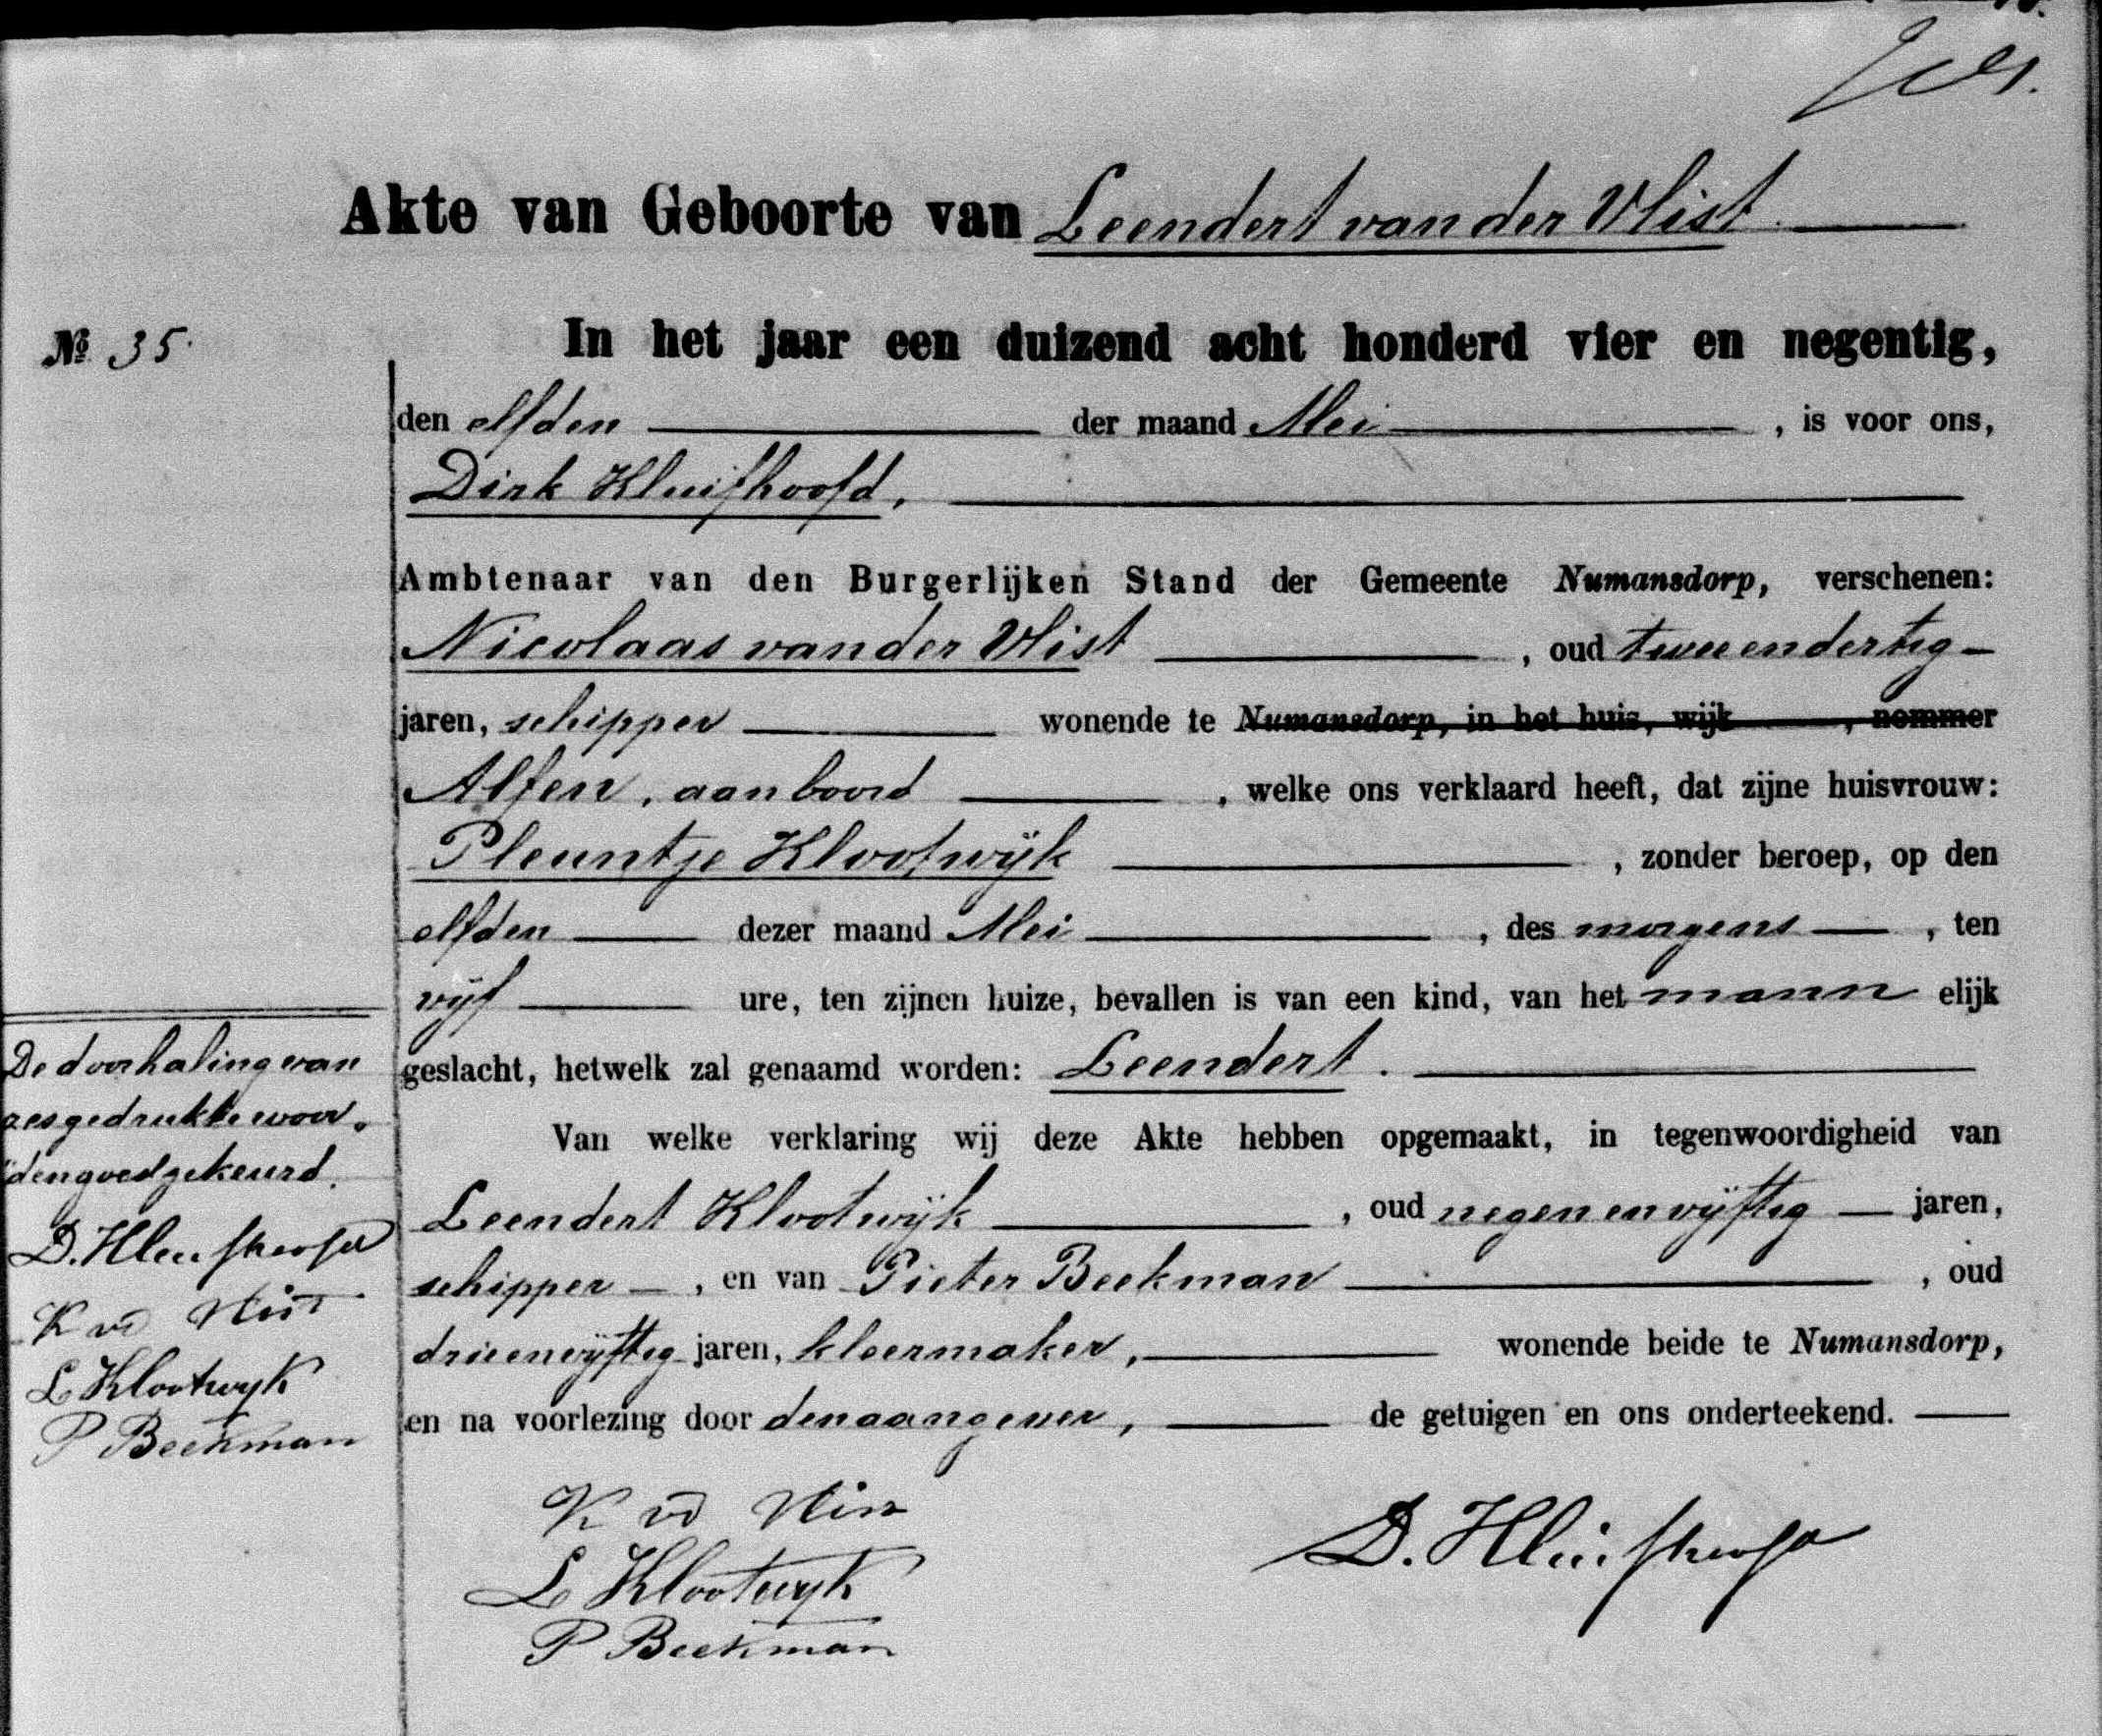 Akte van Geboorte van Leendert van der Vlist
No 35.
In het jaar een duizend acht honderd vier en negentig,
den elfden der maand Mei, is voor ons,
Dirk Kluifhoofd,
Ambtenaar van den Burgerlijken Stand der Gemeente Numansdorp, verschenen:
Nicolaas van der Vlist, oud twee en dertig
jaren, schipper wonende te Numansdorp, in het huis, wijk , nommer
Alfen, aan boord, welke ons verklaard heeft, dat zijne huisvrouw:
Pleuntje Klootwijk, zonder beroep, op den
elfden dezer maand Mei, des morgens, ten
vijf ure, ten zijnen huize, bevallen is van een kind, van het mann elijk
geslacht, hetwelk zal genaamd worden: Leendert.
Van welke verklaring wij deze Akte hebben opgemaakt, in tegenwoordigheid van
Leendert Klootwijk, oud negen en vijftig jaren,
schipper, en van Pieter Beekman, oud
drie en vijftig jaren, kleermaker, wonende beide te Numansdorp,
en na voorlezing door den aangever, de getuigen en ons onderteekend.
De doorhaling van
zes gedrukte woor-
den goedgekeurd.
D. Kluifhoofd
K vd Vlist
L Klootwyk
P Beekman
K vd Vlist
L Klootwyk
P Beekman
D. Kluifhoofd